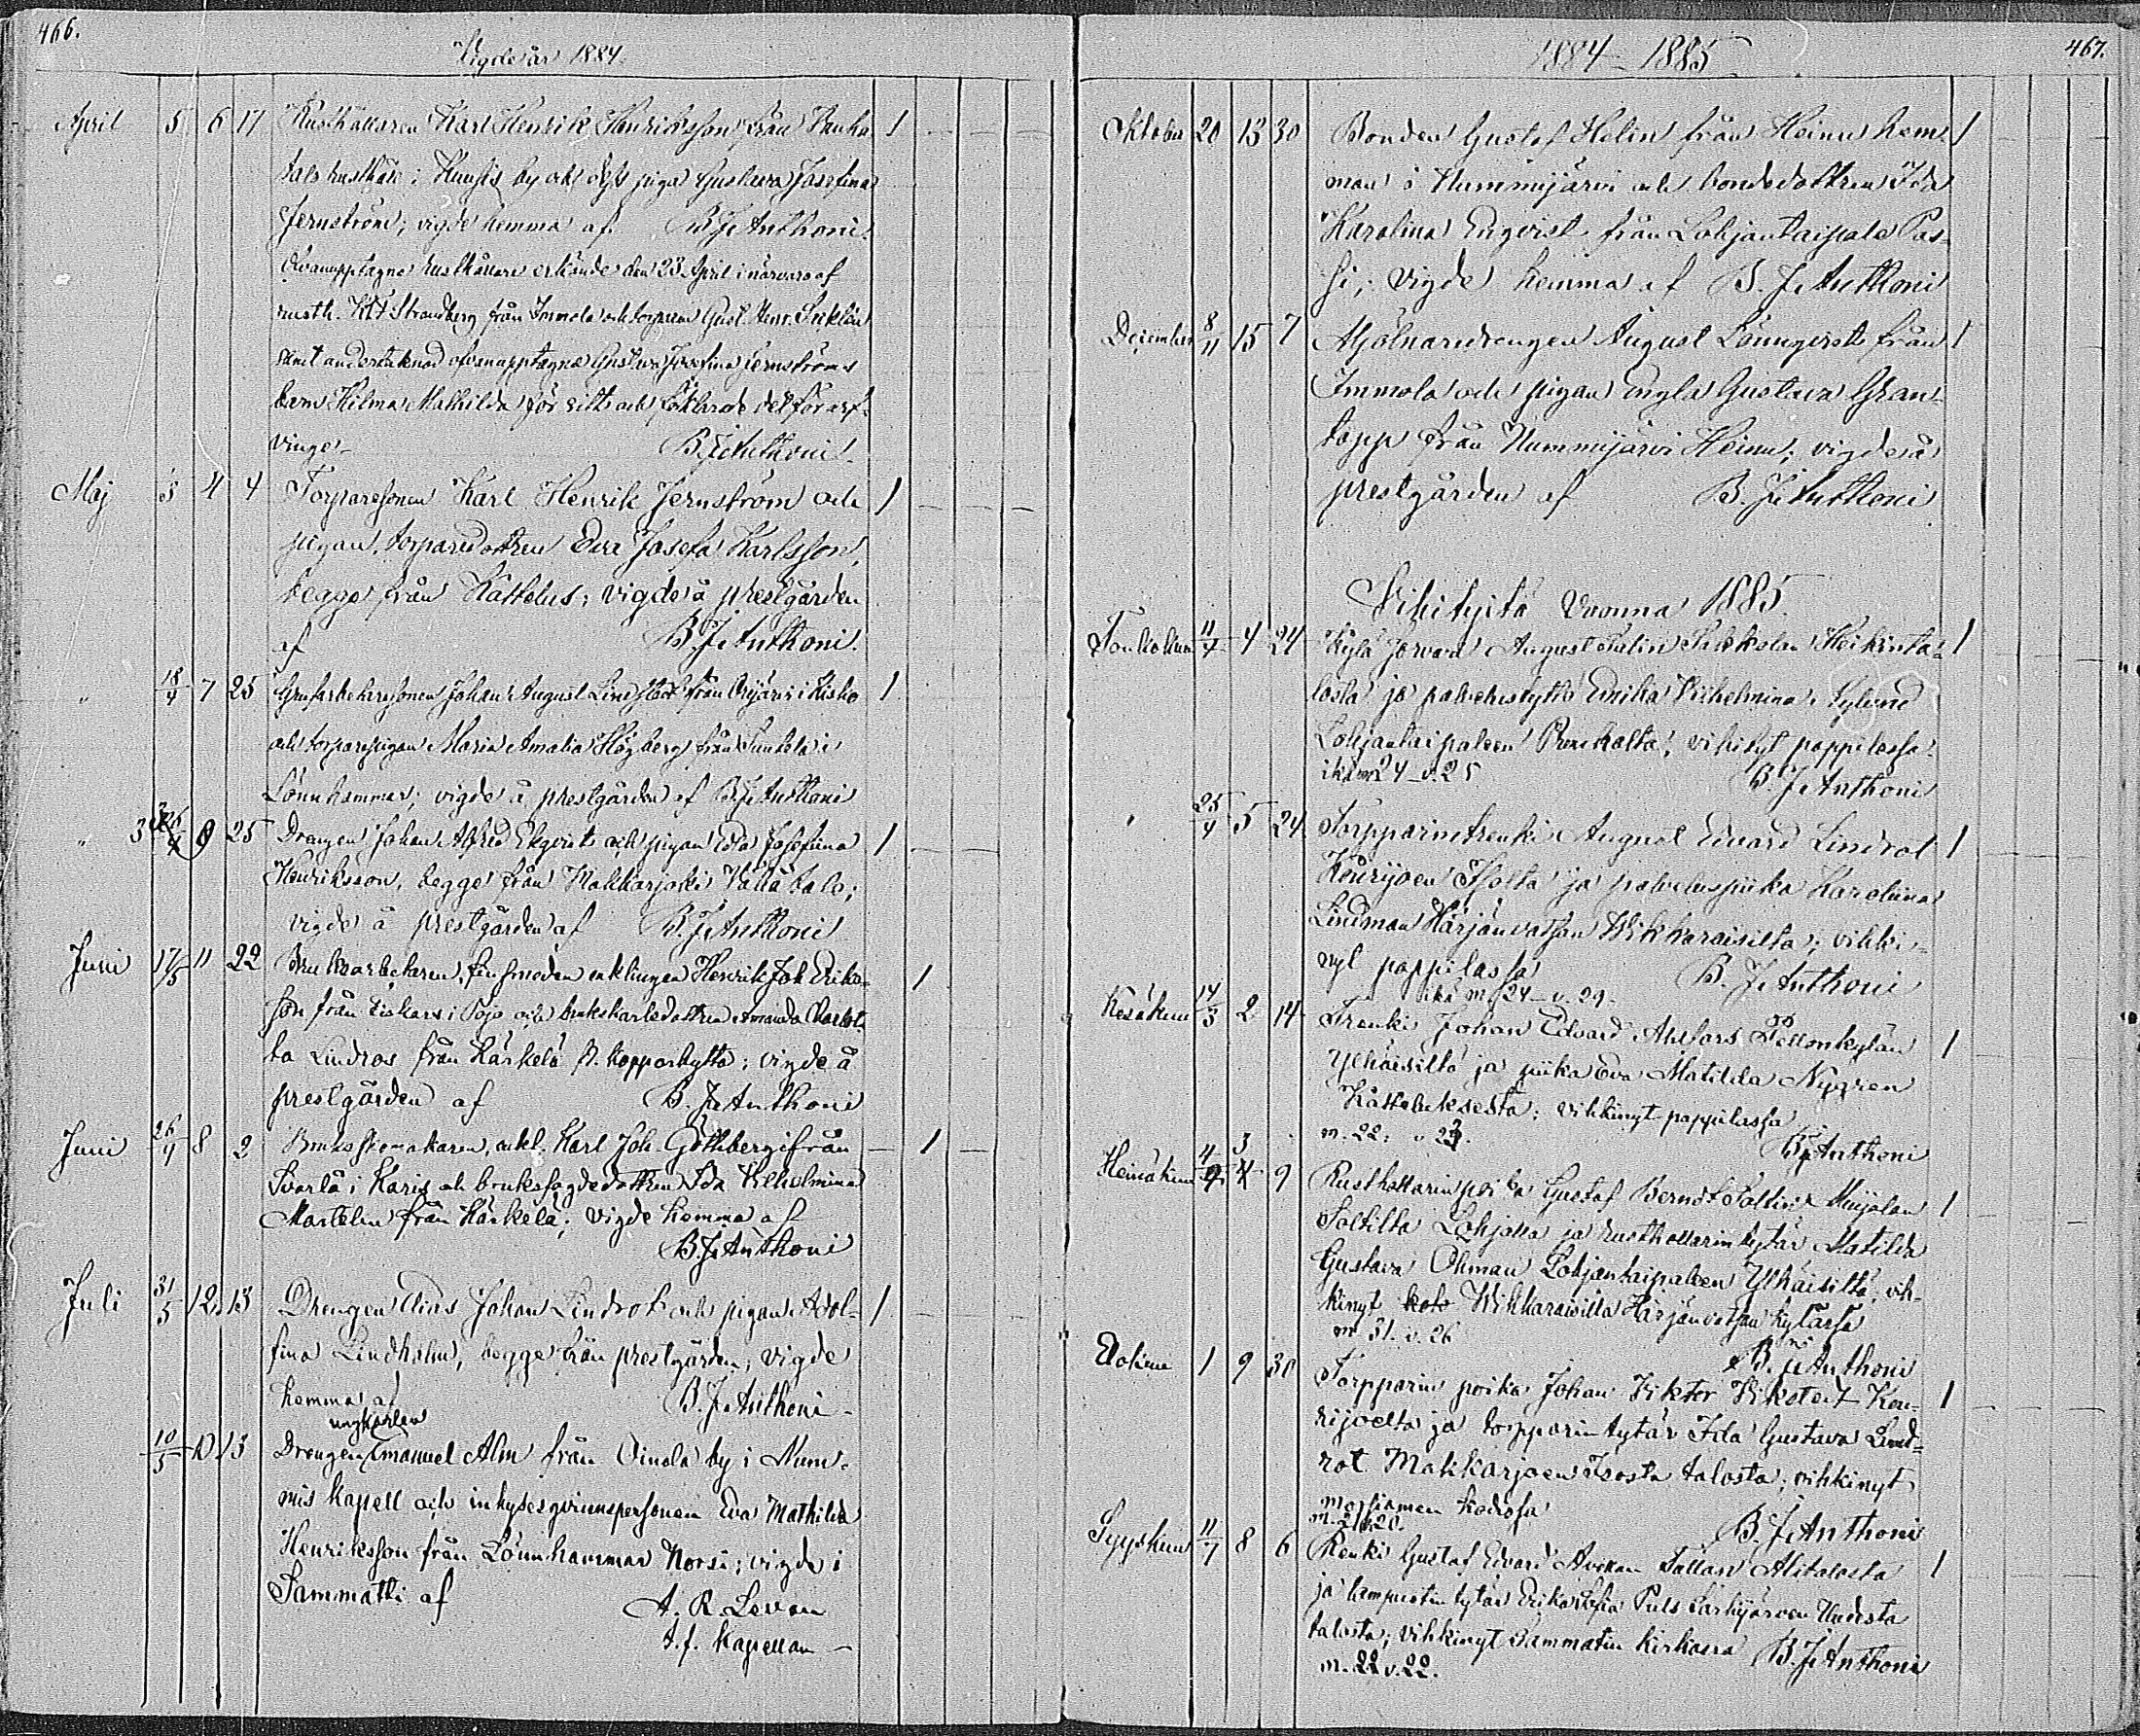 466.
Vigde år 1884.
April 5 6 17 Rusthållaren Karl Henrik Henriksson från 1
tals rusthåll i by och dess piga Gustava Josefina
Jernström; vigde hemma af B. J. Anthoni.
Ofvanupptagne rusthållare erkände den 23 April i närvaro af
rusth. K. F. Strandberg från Immola och torparen Gust. Henr.
samt undertecknad ofvanupptagna Gustava Josefina Jernströms
barn Hilma Mathilda för sitt och förklarade det för arf-
vinge. B. J. Anthoni.
Maj 4 4 Torparesonen Karl Henrik Jernström och 1
pigan, torparedottren Eva Josefa Karlsson,
begge från Kattelus; vigde å prestgården
af B. J. Anthoni.
" 18/4 7 25 Grufarbetaresonen Johan August Lindstedt från Orijärvi i Kisko 1
och torparepigan Maria Amalia Högberg från i
Lönnhammar; vigde å prestgården af B. J. Anthoni
" 25 Drengen Johan Alfred Ekqvist och pigan Eda Josefina 1
Henriksson, begge från Makkarjoki Vähätalo;
vigde å prestgården af B. J. Anthoni
Juni 17/5 11 22 Bruksarbetaren, finsmeden enklingen Henrik Joh. Eriks- 1
son från Fiskars i Pojo och brukskarledottren Amanda Charlot-
ta Lindros från Kärkelä st. kopparhytta; vigde å
prestgården af B. J. Anthoni
Juni 26/4 8 2 Bruksskomakaren, enkl. Karl Joh. Göthberg från 1
Svartå i Karis och bruksfogdedottren Ida Vilhelmina
Martelin från Kärkelä; vigde hemma af
B. J. Anthoni
Juli 31/5 12 13 Drengen Elias Johan Lindrot och pigan Adol- 1
fina Lindholm, begge från prestgården; vigde
hemma af B. J. Anthoni
ungkarlen
10/5 13 Drengen Emanuel Alm från Oinola by i Num-
mis kapell och inhyses qvinnspersonen Eva Mathilda
Henriksson från Lönnhammar Norsi; vigde i
Sammatti af A. R. Levan
t. f. Kapellan
1884–1885
467.
Oktober 20 13 30 Bonden Gustaf Helin från Heimu hem- 1
man i Nummijärvi och bondedottren Ida
Karolina Enqvist från Lohjantaipale Pas-
si; vigde hemma af B. J. Anthoni
December 8/11 15 7 Mjölnaredrengen August Lönnqvist från 1
Immola och pigan Engla Gustava Gran-
topp från Nummijärvi Heimu; vigde å
prestgården af B. J. Anthoni
Vihityitä Vuonna 1885.
Toukokuu 11/4 4 24 August Salin Sakkolan Heikinta- 1
losta ja palvelustyttö Emilia Vilhelmina Nylund
Lohjantaipaleen vihityt pappilassa
ikä m. 24 v. 25 B. J. Anthoni
" 25/4 5 24 Torpparin trenki August Edvard Lindrot 1
Kourijoen Isosta ja palveluspiika Karoliina
Lindman Härjänvatsan Wikkaraisilta; vihki-
nyt pappilassa B. J. Anthoni
ikä m. 24 v. 29
Kesäkuu 14/3 2 14 Trenki Johan Edvard Ahlfors Pellonkylän 1
Ylhäisiltä ja piika Eva Matilda Nygren
Kattelukseesta; vihkinyt pappilassa
m. 22. v. 23. B. J. Anthoni
Heinäkuu 4 9 Rusthollarin poika Gustaf Berndt Saltin Muijalan 1
Saltilta Lohjalla ja rusthollarin tytär Matilda
Gustava Öhman Lohjantaipaleen Ylhäisiltä; vih-
kinyt Wikkaraisilla Härjänvatsan kylässä
m 31. v. 26 B. J. Anthoni
Elokuu 1 9 30 Torpparin poika Johan Viktor Vikstedt Kou- 1
rijoelta ja torpparin tytär Ida Gustava Lind-
rot Makkarjoen Isosta talosta; vihkinyt
morsiamen kodossa
m. 21 v. 20. B. J. Anthoni
Syyskuu 11/7 8 6 Renki Gustaf Edvard Tallan Alitalosta 1
ja lampuotin tytär Erika Sofia Puls Särkijärven Uudesta
talosta; vihkinyt Sammatin kirkossa B. J. Anthoni
m. 22 v. 22.